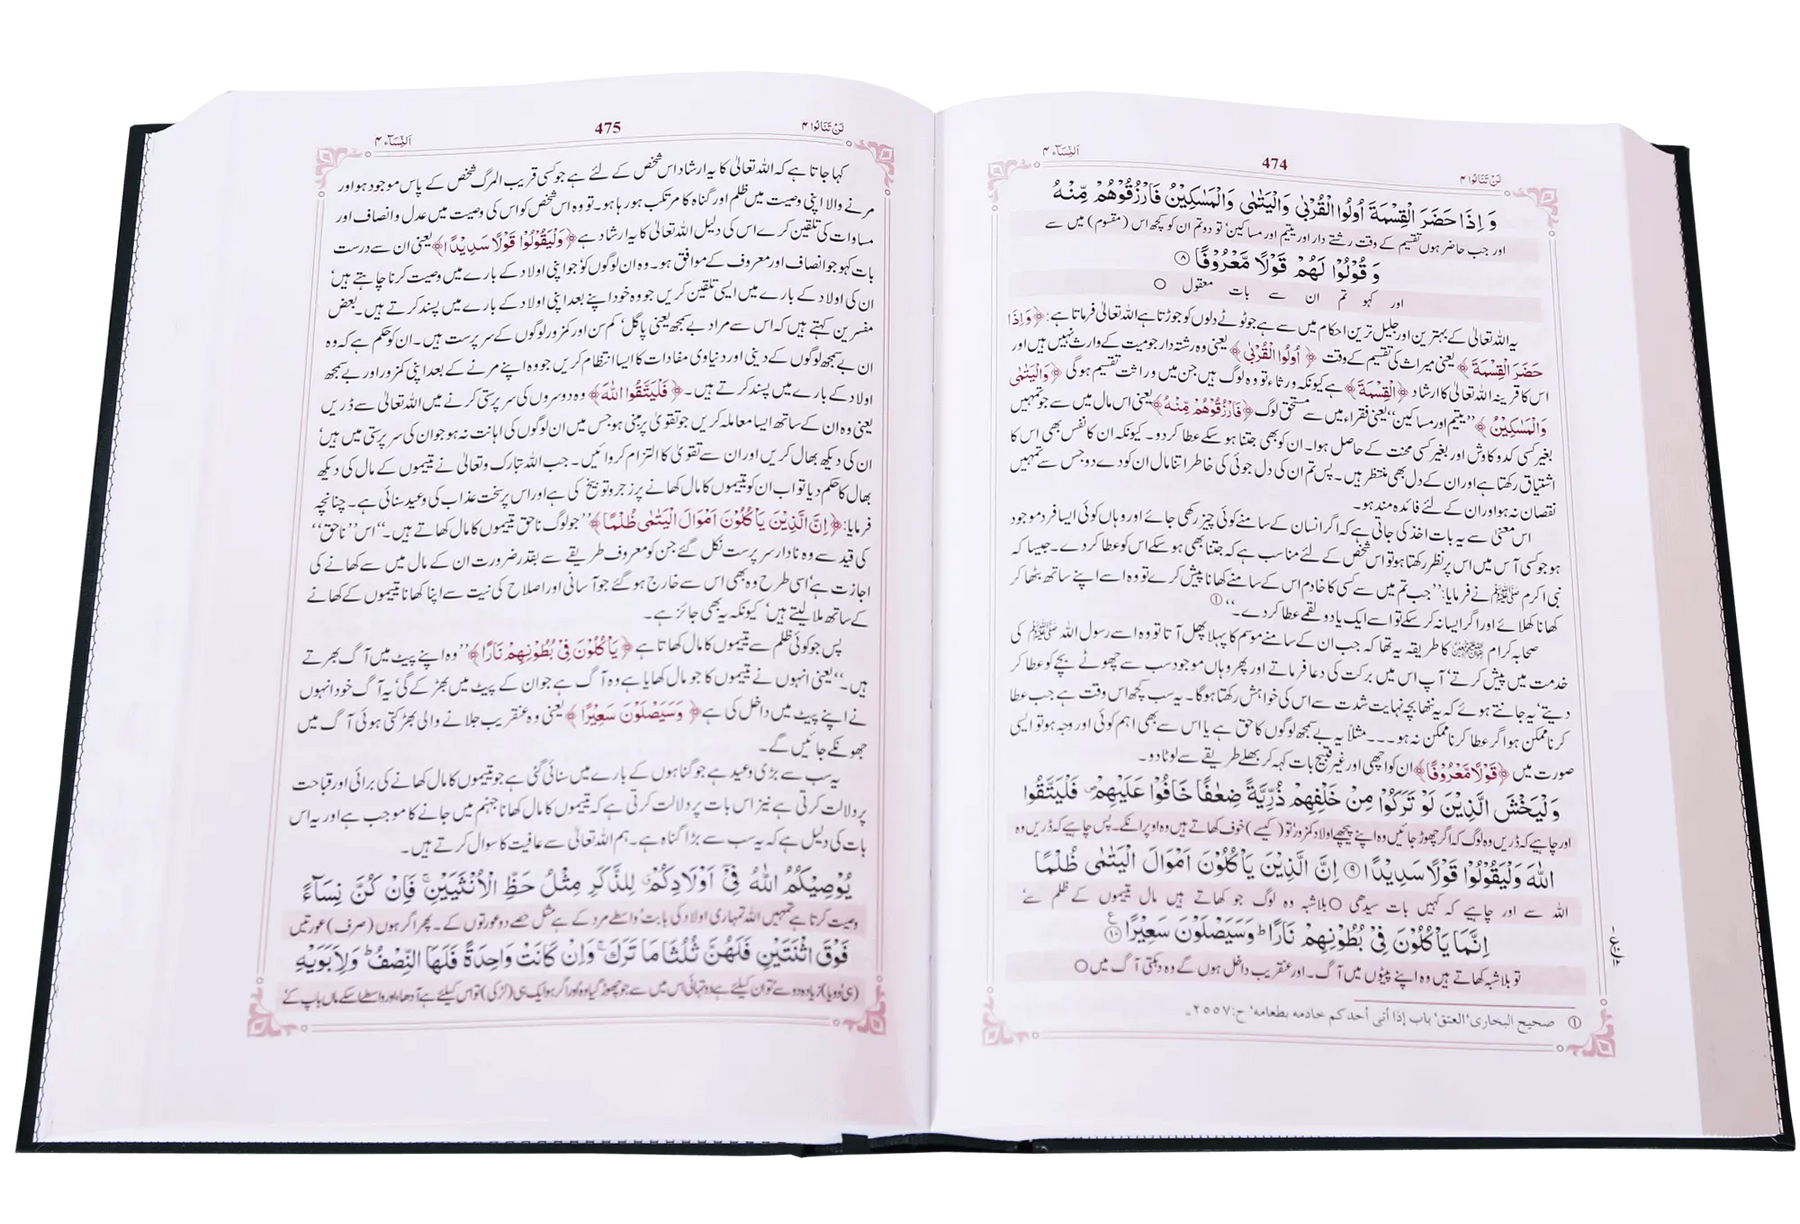 لَنْ تَنَالُوا ۴
474
اَلنِّسَآء ۴
وَ اِذَا حَضَرَ الْقِسْمَةَ اُولُوا الْقُرْبٰى وَالْيَتٰمٰى وَالْمَسٰكِيْنُ فَارْزُقُوْهُمْ مِّنْهُ
اور جب حاضر ہوں تقسیم کے وقت رشتے دار اور یتیم اور مساکین' تو دو تم ان کو کچھ اس (مقسوم) میں سے
وَ قُوْلُوْا لَهُمْ قَوْلًا مَّعْرُوْفًا ۸
اور کہو تم ان سے بات معقول ○
یہ اللہ تعالیٰ کے بہترین اور جلیل ترین احکام میں سے ہے جو ٹوٹے دلوں کو جوڑتا ہے اللہ تعالیٰ فرماتا ہے: ﴿وَاِذَا
حَضَرَ الْقِسْمَةَ﴾ یعنی میراث کی تقسیم کے وقت ﴿اُولُوا الْقُرْبٰى﴾ یعنی وہ رشتہ دار جو میت کے وارث نہیں ہیں اور
اس کا قرینہ اللہ تعالیٰ کا ارشاد ﴿الْقِسْمَةَ﴾ ہے کیونکہ ورثاء تو وہ لوگ ہیں جن میں وراثت تقسیم ہوگی ﴿وَالْيَتٰمٰى
وَالْمَسٰكِيْنُ﴾ ''یتیم اور مساکین'' یعنی فقراء میں سے مستحق لوگ ﴿فَارْزُقُوْهُمْ مِّنْهُ﴾ یعنی اس مال میں سے جو تمہیں
بغیر کسی کدو کاوش اور بغیر کسی محنت کے حاصل ہوا۔ ان کو بھی جتنا ہو سکے عطا کر دو۔ کیونکہ ان کا نفس بھی اس کا
اشتیاق رکھتا ہے اور ان کے دل بھی منتظر ہیں۔ پس تم ان کی دل جوئی کی خاطر اتنا مال ان کو دے دو جس سے تمہیں
نقصان نہ ہو اور ان کے لئے فائدہ مند ہو۔
اس معنیٰ سے یہ بات اخذ کی جاتی ہے کہ اگر انسان کے سامنے کوئی چیز رکھی جائے اور وہاں کوئی ایسا فرد موجود
ہو جو کسی آس میں اس پر نظر رکھتا ہو تو اس شخص کے لئے مناسب ہے کہ جتنا بھی ہو سکے اس کو عطا کر دے۔ جیسا کہ
نبی اکرم ﷺ نے فرمایا: ''جب تم میں سے کسی کا خادم اس کے سامنے کھانا پیش کرے تو وہ اسے اپنے ساتھ بٹھا کر
کھانا کھلائے اور اگر ایسا نہ کر سکے تو اسے ایک یا دو لقمے عطا کر دے۔''①
صحابہ کرام کا طریقہ یہ تھا کہ جب ان کے سامنے موسم کا پہلا پھل آتا تو وہ اسے رسول اللہ ﷺ کی
خدمت میں پیش کرتے' آپ اس میں برکت کی دعا فرماتے اور پھر وہاں موجود سب سے چھوٹے بچے کو عطا کر
دیتے' یہ جانتے ہوئے کہ یہ ننھا بچہ نہایت شدت سے اس کی خواہش رکھتا ہوگا۔ یہ سب کچھ اس وقت ہے جب عطا
کرنا ممکن ہو اگر عطا کرنا ممکن نہ ہو۔۔۔ مثلاً یہ بے سمجھ لوگوں کا حق ہے یا اس سے بھی اہم کوئی اور وجہ ہو تو ایسی
صورت میں ﴿قَوْلًا مَّعْرُوْفًا﴾ ان کو اچھی اور غیر قبیح بات کہہ کر بھلے طریقے سے لوٹا دو۔
وَلْيَخْشَ الَّذِيْنَ لَوْ تَرَكُوْا مِنْ خَلْفِهِمْ ذُرِّيَّةً ضِعٰفًا خَافُوْا عَلَيْهِمْ ۪ فَلْيَتَّقُوا
اور چاہیے کہ ڈریں وہ لوگ کہ اگر چھوڑ جائیں وہ اپنے پیچھے اولاد کمزور' تو (کیسے) خوف کھاتے ہیں وہ اوپر انکے۔ پس چاہیے کہ ڈریں وہ
اللّٰهَ وَلْيَقُوْلُوْا قَوْلًا سَدِيْدًا ۹ اِنَّ الَّذِيْنَ يَاْكُلُوْنَ اَمْوَالَ الْيَتٰمٰى ظُلْمًا
اللہ سے اور چاہیے کہ کہیں بات سیدھی ○ بلاشبہ وہ لوگ جو کھاتے ہیں مال یتیموں کے ظلم سے'
اِنَّمَا يَاْكُلُوْنَ فِيْ بُطُوْنِهِمْ نَارًا ؕ وَسَيَصْلَوْنَ سَعِيْرًا ۱۰
تو بلاشبہ کھاتے ہیں وہ اپنے پیٹوں میں آگ۔ اور عنقریب داخل ہوں گے وہ دہکتی آگ میں ○
① صحیح البخاری' العتق' باب إذا أتى أحدكم خادمه بطعامه' ح:۲۵۵۷۔
لَنْ تَنَالُوا ۴
475
اَلنِّسَآء ۴
کہا جاتا ہے کہ اللہ تعالیٰ کا یہ ارشاد اس شخص کے لئے ہے جو کسی قریب المرگ شخص کے پاس موجود ہو اور
مرنے والا اپنی وصیت میں ظلم اور گناہ کا مرتکب ہو رہا ہو۔ تو وہ اس شخص کو اس کی وصیت میں عدل و انصاف اور
مساوات کی تلقین کرے اس کی دلیل اللہ تعالیٰ کا یہ ارشاد ہے ﴿وَلْيَقُوْلُوْا قَوْلًا سَدِيْدًا﴾ یعنی ان سے درست
بات کہو جو انصاف اور معروف کے موافق ہو۔ وہ ان لوگوں کو' جو اپنی اولاد کے بارے میں وصیت کرنا چاہتے ہیں'
ان کی اولاد کے بارے میں ایسی تلقین کریں جو وہ خود اپنے بعد اپنی اولاد کے بارے میں پسند کرتے ہیں۔ بعض
مفسرین کہتے ہیں کہ اس سے مراد بے سمجھ یعنی پاگل' کم سن اور کمزور لوگوں کے سرپرست ہیں۔ ان کو حکم ہے کہ وہ
ان بے سمجھ لوگوں کے دینی اور دنیاوی مفادات کا ایسا انتظام کریں جو وہ اپنے مرنے کے بعد اپنی کمزور اور بے سمجھ
اولاد کے بارے میں پسند کرتے ہیں۔ ﴿فَلْيَتَّقُوا اللّٰهَ﴾ وہ دوسروں کی سرپرستی کرنے میں اللہ تعالیٰ سے ڈریں
یعنی وہ ان کے ساتھ ایسا معاملہ کریں جو تقویٰ پر مبنی ہو' جس میں ان لوگوں کی اہانت نہ ہو جو ان کی سرپرستی میں ہیں'
ان کی دیکھ بھال کریں اور ان سے تقویٰ کا التزام کروائیں۔ جب اللہ تبارک وتعالیٰ نے یتیموں کے مال کی دیکھ
بھال کا حکم دیا تو اب ان کو یتیموں کا مال کھانے پر زجر و توبیخ کی ہے اور اس پر سخت عذاب کی وعید سنائی ہے۔ چنانچہ
فرمایا: ﴿اِنَّ الَّذِيْنَ يَاْكُلُوْنَ اَمْوَالَ الْيَتٰمٰى ظُلْمًا﴾ ''جو لوگ ناحق یتیموں کا مال کھاتے ہیں۔'' اس ''ناحق''
کی قید سے وہ نادار سرپرست نکل گئے جن کو معروف طریقے سے بقدر ضرورت ان کے مال میں سے کھانے کی
اجازت ہے' اسی طرح وہ بھی اس سے خارج ہو گئے جو آسانی اور اصلاح کی نیت سے اپنا کھانا یتیموں کے کھانے
کے ساتھ ملا لیتے ہیں' کیونکہ یہ بھی جائز ہے۔
پس جو کوئی ظلم سے یتیموں کا مال کھاتا ہے ﴿يَاْكُلُوْنَ فِيْ بُطُوْنِهِمْ نَارًا﴾ ''وہ اپنے پیٹ میں آگ بھرتے
ہیں۔'' یعنی انہوں نے یتیموں کا جو مال کھایا ہے وہ آگ ہے جو ان کے پیٹ میں بھڑکے گی' یہ آگ خود انہوں
نے اپنے پیٹ میں داخل کی ہے ﴿وَسَيَصْلَوْنَ سَعِيْرًا﴾ یعنی وہ عنقریب جلانے والی بھڑکتی ہوئی آگ میں
جھونکے جائیں گے۔
یہ سب سے بڑی وعید ہے جو گناہوں کے بارے میں سنائی گئی ہے جو یتیموں کا مال کھانے کی برائی اور قباحت
پر دلالت کرتی ہے نیز اس بات پر دلالت کرتی ہے کہ یتیموں کا مال کھانا جہنم میں جانے کا موجب ہے اور یہ اس
بات کی دلیل ہے کہ یہ سب سے بڑا گناہ ہے۔ ہم اللہ تعالیٰ سے عافیت کا سوال کرتے ہیں۔
يُوْصِيْكُمُ اللّٰهُ فِيْۤ اَوْلَادِكُمْ ۗ لِلذَّكَرِ مِثْلُ حَظِّ الْاُنْثَيَيْنِ ۚ فَاِنْ كُنَّ نِسَآءً
وصیت کرتا ہے تمہیں اللہ تمہاری اولاد کی بابت' واسطے مرد کے ہے مثل حصے دو عورتوں کے۔ پھر اگر ہوں (صرف) عورتیں
فَوْقَ اثْنَتَيْنِ فَلَهُنَّ ثُلُثَا مَا تَرَكَ ۚ وَاِنْ كَانَتْ وَاحِدَةً فَلَهَا النِّصْفُ ؕ وَلِاَبَوَيْهِ
(ہی' دو یا) زیادہ دو سے' تو ان کیلئے ہے دو تہائی اس میں سے جو چھوڑ گیا وہ' اور اگر ہو ایک ہی (لڑکی) تو اس کیلئے ہے آدھا' اور واسطے اسکے ماں باپ کے'